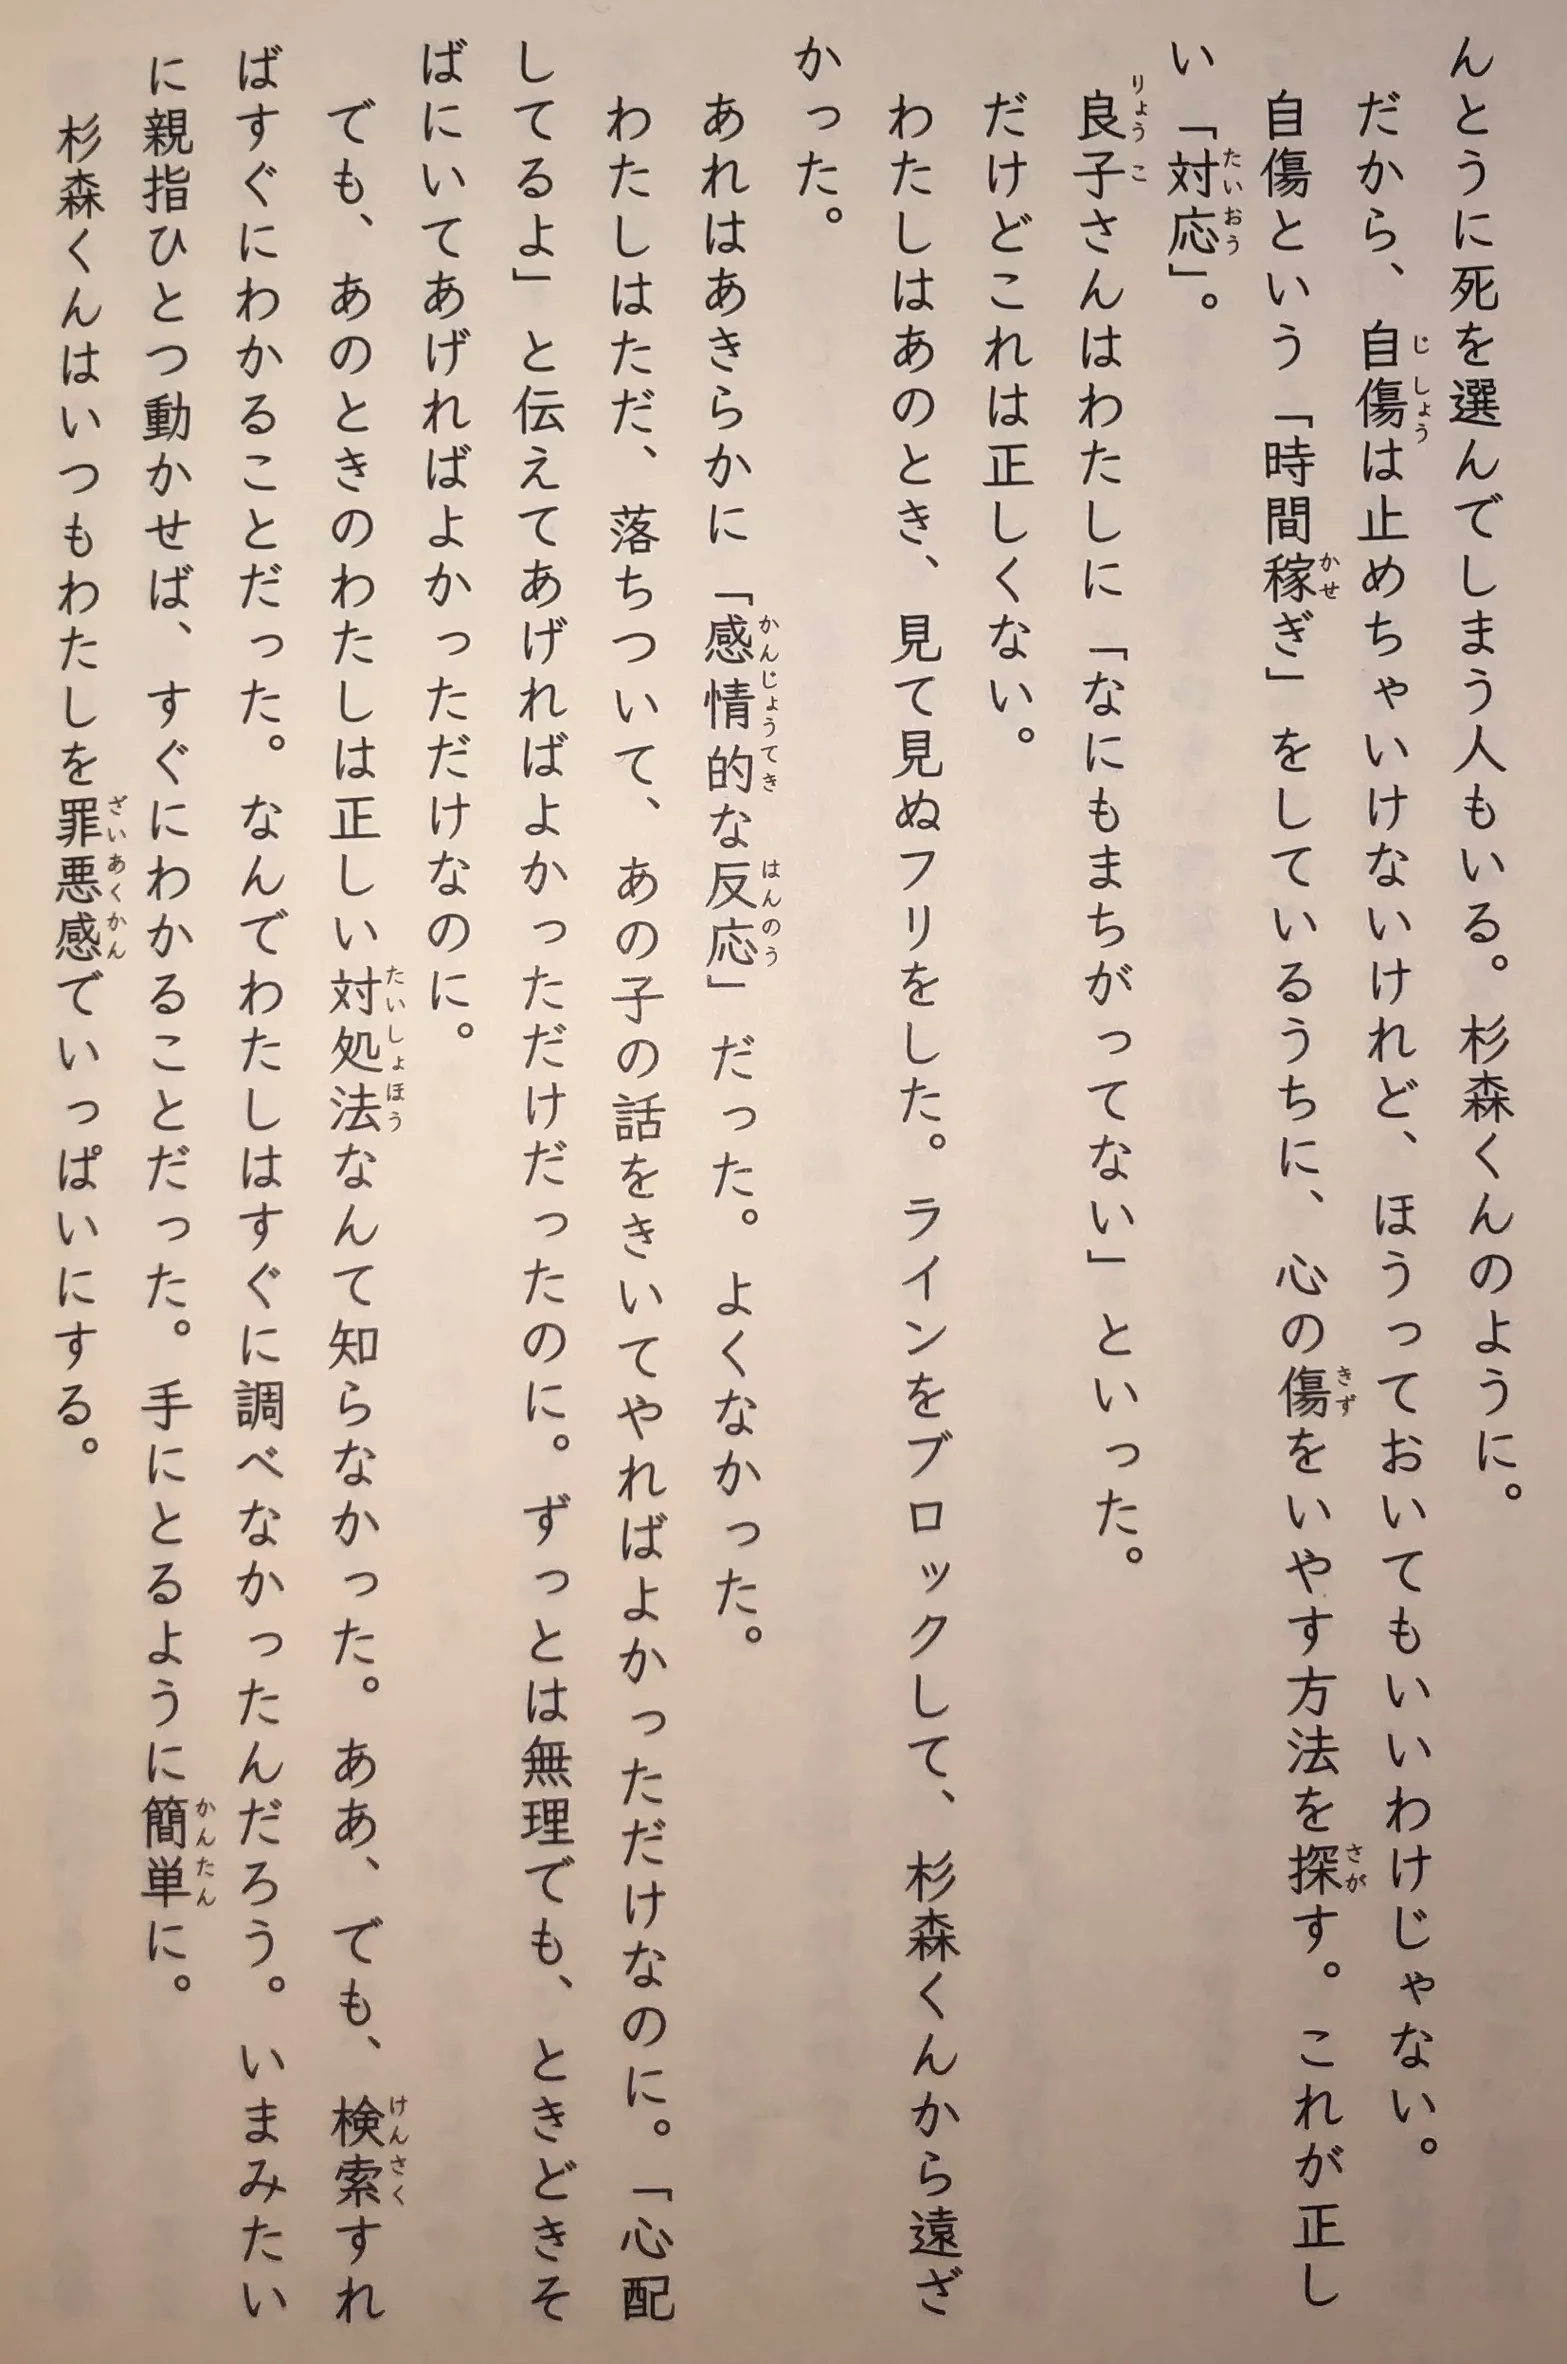 んとうに死を選んでしまう人もいる。杉森くんのように。
だから、自傷は止めちゃいけないけれど、ほうっておいてもいいわけじゃない。
自傷という「時間稼ぎ」をしているうちに、心の傷をいやす方法を探す。これが正し
い「対応」。
良子さんはわたしに「なにもまちがってない」といった。
だけどこれは正しくない。
わたしはあのとき、見て見ぬフリをした。ラインをブロックして、杉森くんから遠ざ
かった。
あれはあきらかに「感情的な反応」だった。よくなかった。
わたしはただ、落ちついて、あの子の話をきいてやればよかっただけなのに。「心配
してるよ」と伝えてあげればよかっただけだったのに。ずっとは無理でも、ときどきそ
ばにいてあげればよかっただけなのに。
でも、あのときのわたしは正しい対処法なんて知らなかった。ああ、でも、検索すれ
ばすぐにわかることだった。なんでわたしはすぐに調べなかったんだろう。いまみたい
に親指ひとつ動かせば、すぐにわかることだった。手にとるように簡単に。
杉森くんはいつもわたしを罪悪感でいっぱいにする。